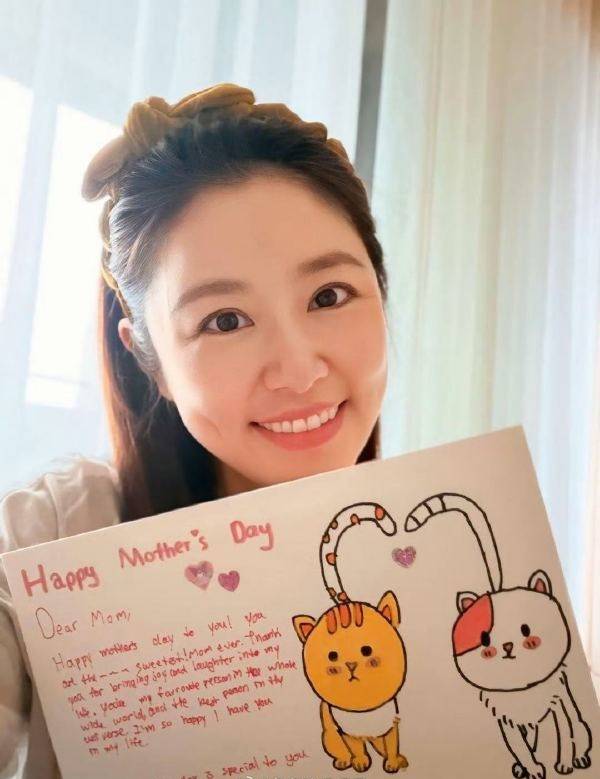 Happy Mother's Day
Dear Mom,
Happy mothers day to you! you
are the sweetest! Mom ever. Thank
you for bringing joy and laughter into my
life. you're my favroute person in the whole
wide world, and the best person in the
universe. I'm so happy I have you
in my life.
special to you